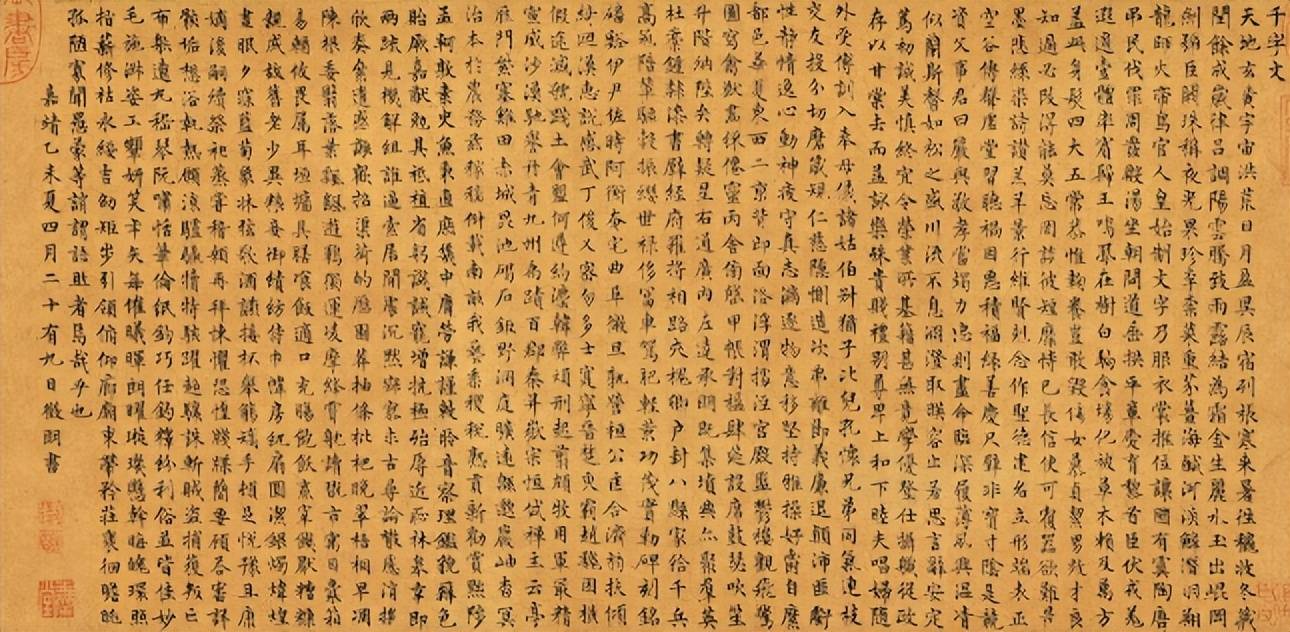 千字文
天地玄黃宇宙洪荒日月盈昃辰宿列張寒來暑往穐收冬藏
閏餘成歲律呂調陽雲騰致雨露結為霜金生麗水玉出崐岡
劍號巨闕珠稱夜光果珍李柰菜重芥薑海鹹河淡鱗潛羽翔
龍師火帝鳥官人皇始制文字乃服衣裳推位讓國有虞陶唐
弔民伐罪周發殷湯坐朝問道垂拱平章愛育黎首臣伏戎羌
遐邇壹體率賓歸王鳴鳳在樹白駒食場化被草木賴及萬方
蓋此身髮四大五常恭惟鞠養豈敢毀傷女慕貞絜男效才良
知過必改得能莫忘罔談彼短靡恃己長信使可覆器欲難量
墨悲絲染詩讚羔羊景行維賢剋念作聖德建名立形端表正
空谷傳聲虛堂習聽禍因惡積福緣善慶尺璧非寶寸陰是競
資父事君曰嚴與敬孝當竭力忠則盡命臨深履薄夙興溫凊
似蘭斯馨如松之盛川流不息淵澄取映容止若思言辭安定
篤初誠美慎終宜令榮業所基籍甚無竟學優登仕攝職從政
存以甘棠去而益詠樂殊貴賤禮別尊卑上和下睦夫唱婦隨
外受傅訓入奉母儀諸姑伯叔猶子比兒孔懷兄弟同氣連枝
交友投分切磨箴規仁慈隱惻造次弗離節義廉退顛沛匪虧
性靜情逸心動神疲守真志滿逐物意移堅持雅操好爵自縻
都邑華夏東西二京背邙面洛浮渭據涇宮殿盤鬱樓觀飛驚
圖寫禽獸畫綵僊靈丙舍傍啟甲帳對楹肆筵設席鼓瑟吹笙
升階納陛弁轉疑星右通廣內左達承明既集墳典亦聚群英
杜稾鍾隸漆書壁經府羅將相路夾槐卿戶封八縣家給千兵
高冠陪輦驅轂振纓世祿侈富車駕肥輕策功茂實勒碑刻銘
磻谿伊尹佐時阿衡奄宅曲阜微旦孰營桓公匡合濟弱扶傾
綺迴漢惠說感武丁俊乂密勿多士寔寧晉楚更霸趙魏困橫
假途滅虢踐土會盟何遵約法韓弊煩刑起翦頗牧用軍最精
宣威沙漠馳譽丹青九州禹蹟百郡秦并嶽宗恒岱禪主云亭
雁門紫塞雞田赤城昆池碣石鉅野洞庭曠遠緜邈巖岫杳冥
治本於農務茲稼穡俶載南畝我蓺黍稷稅熟貢新勸賞黜陟
孟軻敦素史魚秉直庶幾中庸勞謙謹敕聆音察理鑑貌辨色
貽厥嘉猷勉其祗植省躬譏誡寵增抗極殆辱近恥林皋幸即
兩疏見機解組誰逼索居閒處沉默寂寥求古尋論散慮逍遙
欣奏累遣慼謝歡招渠荷的歷園莽抽條枇杷晚翠梧桐早凋
陳根委翳落葉飄颻遊鵾獨運凌摩絳霄耽讀翫市寓目囊箱
易輶攸畏屬耳垣牆具膳飡飯適口充腸飽飫烹宰飢厭糟糠
親戚故舊老少異糧妾御績紡侍巾帷房紈扇圓潔銀燭煒煌
晝眠夕寐藍筍象牀絃歌酒讌接杯舉觴矯手頓足悅豫且康
嫡後嗣續祭祀蒸嘗稽顙再拜悚懼恐惶牋牒簡要顧答審詳
骸垢想浴執熱願涼驢騾犢特駭躍超驤誅斬賊盜捕獲叛亡
布射遼丸嵇琴阮嘯恬筆倫紙鈞巧任釣釋紛利俗並皆佳妙
毛施淑姿工顰妍笑年矢每催曦暉朗曜璇璣懸斡晦魄環照
指薪修祜永綏吉劭矩步引領俯仰廊廟束帶矜莊裵徊瞻眺
孤陋寡聞愚蒙等誚謂語助者焉哉乎也
嘉靖乙未夏四月二十有九日徵明書